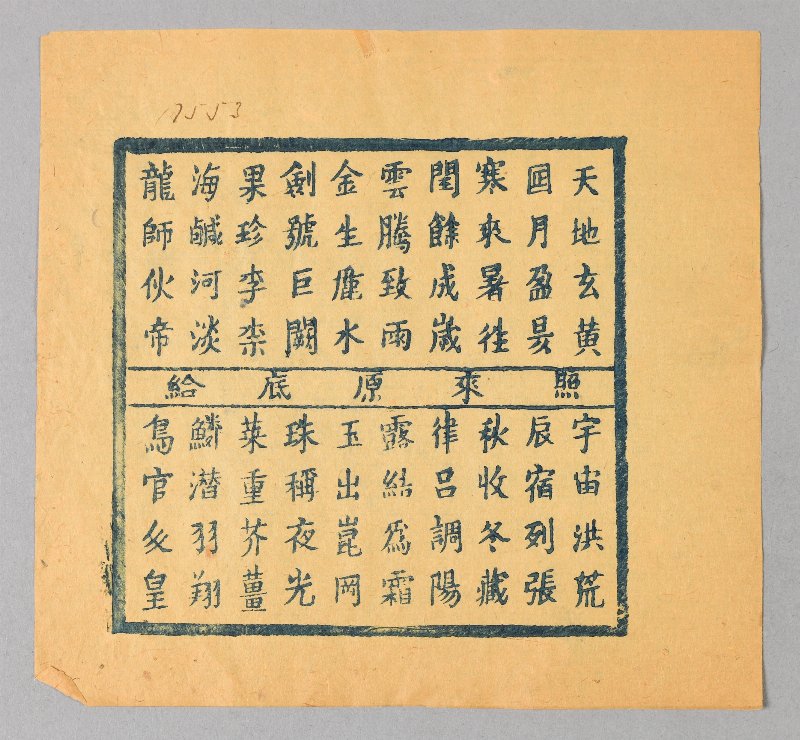 17553
天地玄黃
囸月盈昃
寒來暑往
閏餘成歲
雲騰致雨
金生水
剣號巨闕
果珍李柰
海鹹河淡
龍師伙帝
照來原底給
宇宙洪荒
辰宿列張
秋收冬藏
律呂調陽
露結為霜
玉出崑岡
珠稱夜光
菜重芥薑
鱗潜羽翔
鳥官皇